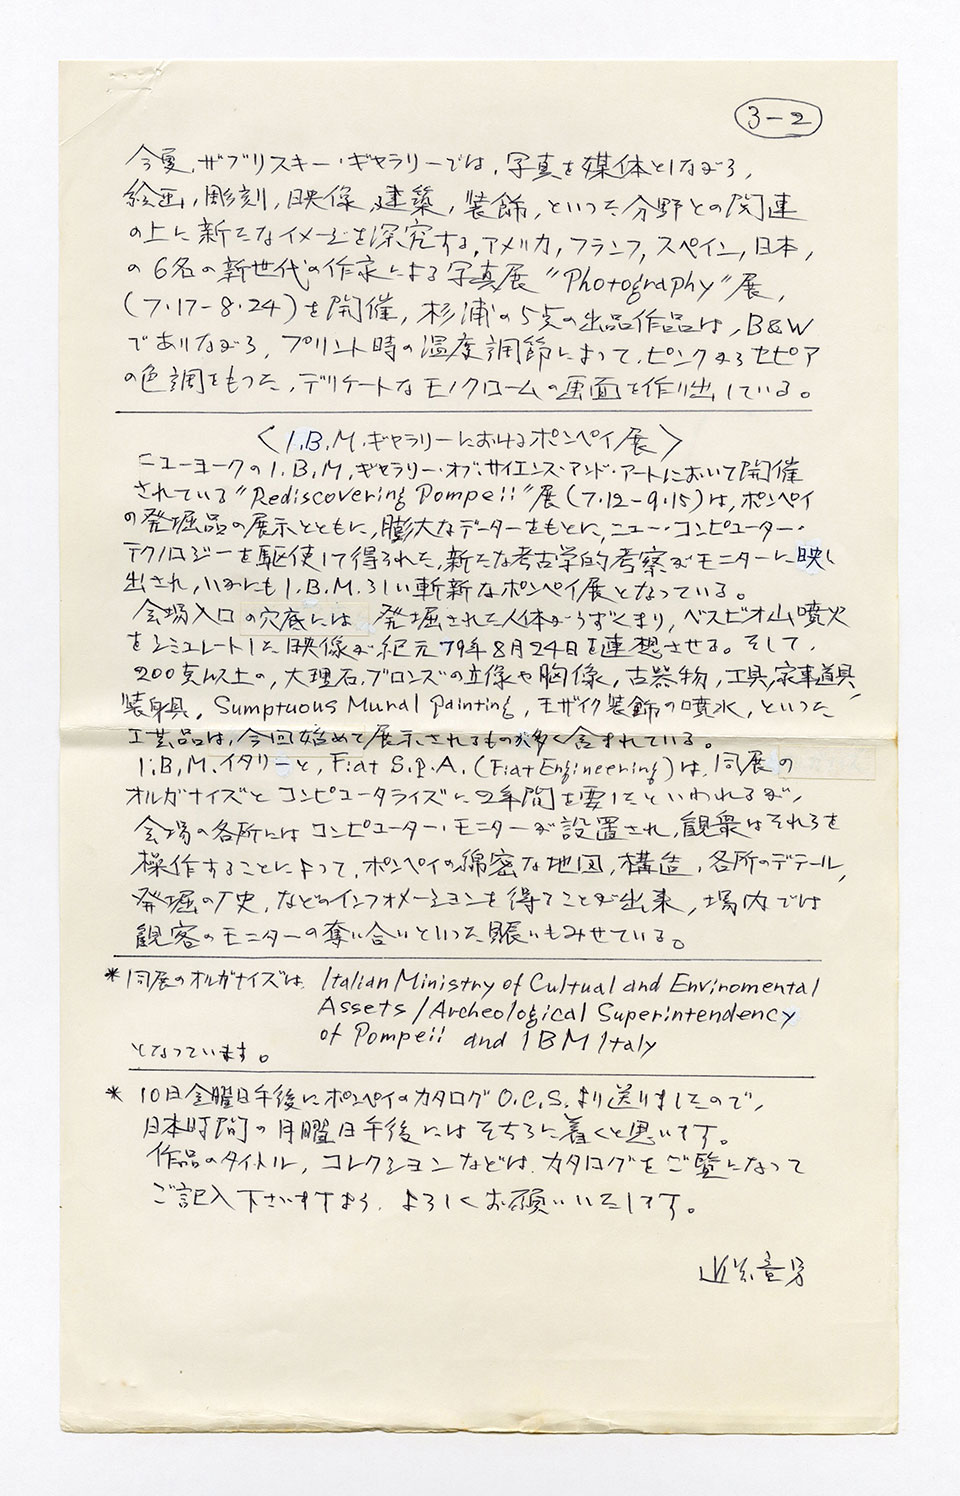 3-2
今夏,ザブリスキー・ギャラリーでは,写真を媒体としながら,
絵画,彫刻,映像,建築,装飾,といった分野との関連
の上に新たなイメージを深究する,アメリカ,フランス,スペイン,日本,
の6名の新世代の作家による写真展"Photography"展,
(7・17-8・24)を開催,杉浦の5点の出品作品は,B&W
でありながら,プリント時の温度調節によって,ピンクがるセピア
の色調をもった,デリケートなモノクロームの画面を作り出している。
〈I.B.M.ギャラリーにおけるポンペイ展〉
ニューヨークのI.B.M,ギャラリー・オブ・サイエンス・アンド・アートにおいて開催
されている"Rediscovering Pompeii"展(7・12-9・15)は,ポンペイ
の発掘品の展示とともに,膨大なデーターをもとに,ニュー・コンピューター・
テクノロジーを駆使して得られた,新たな考古学的考察がモニターに映し
出され,いかにもI.B.M.らしい斬新なポンペイ展となっている。
会場入口の穴底には 発掘された人体がうずくまり,ベスビオ山噴火
をシミュレートした映像が紀元79年8月24日を連想させる。そして,
200点以上の,大理石,ブロンズの立像や胸像,古器物,工具,家事道具,
装身具,Sumptuous Mural painting,モザイク装飾の噴水,といった
工芸品は,今回始めて展示されるものが多く含まれている。
I.B.M.イタリーと,Fiat S.p.A.(Fiat Engineering)は,同展の
オルガナイズとコンピュータライズに2年間を要したといわれるが,
会場の各所にはコンピューター・モニターが設置され,観衆はそれらを
操作することによって,ポンペイの綿密な地図,構造,各所のデテール,
発掘の歴史,などのインフォメーションを得ることが出来,場内では
観客のモニターの奪い合いといった賑いもみせている。
*同展のオルガナイズは, Italian Ministry of Cultual and Enviromental
Assets/Archeological Superintendency
of Pompeii and IBM Italy
となっています。
* 10日金曜日午後にポンペイのカタログO.C.S.より送りましたので,
日本時間の月曜日午後にはそちらに着くと思います。
作品のタイトル,コレクションなどは,カタログをご覧になって
ご記入下さいますよう,よろしくお願いいたします。
近藤竜男